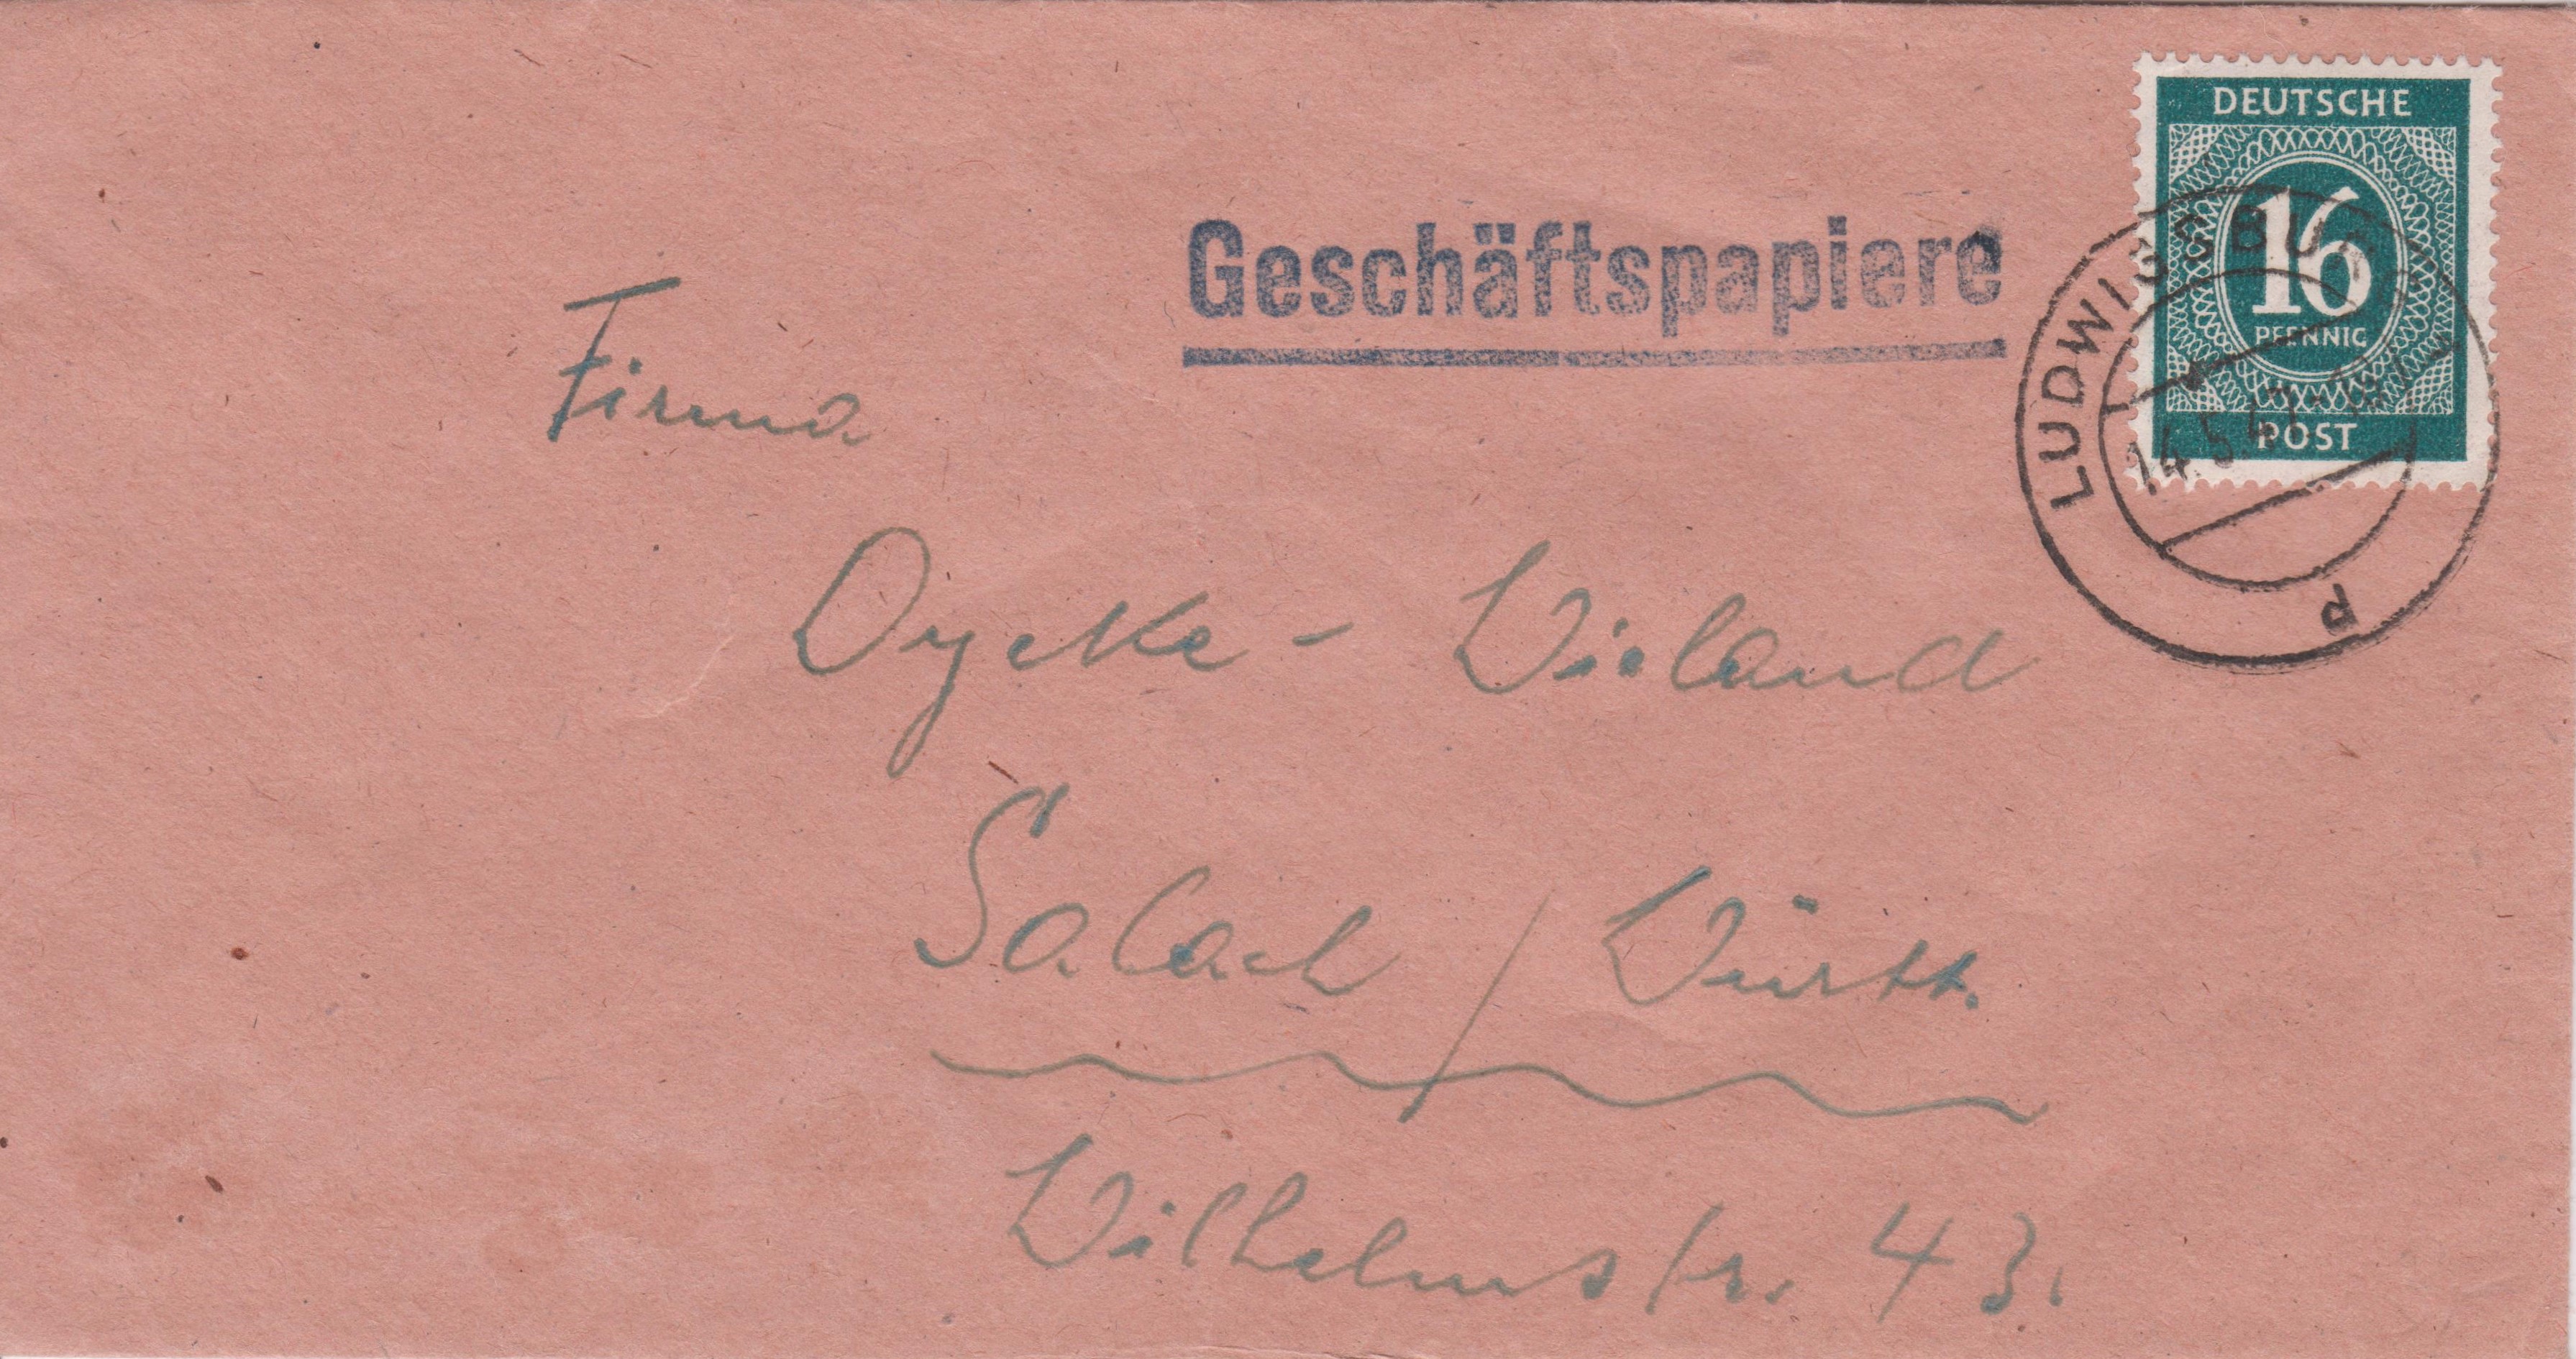 DEUTSCHE
16
PFENNIG
POST
LUDWIGSBURG
14.5.47
Geschäftspapiere
Firma
Dycke - Wieland
Salach / Württ.
Wilhelmstr. 43.